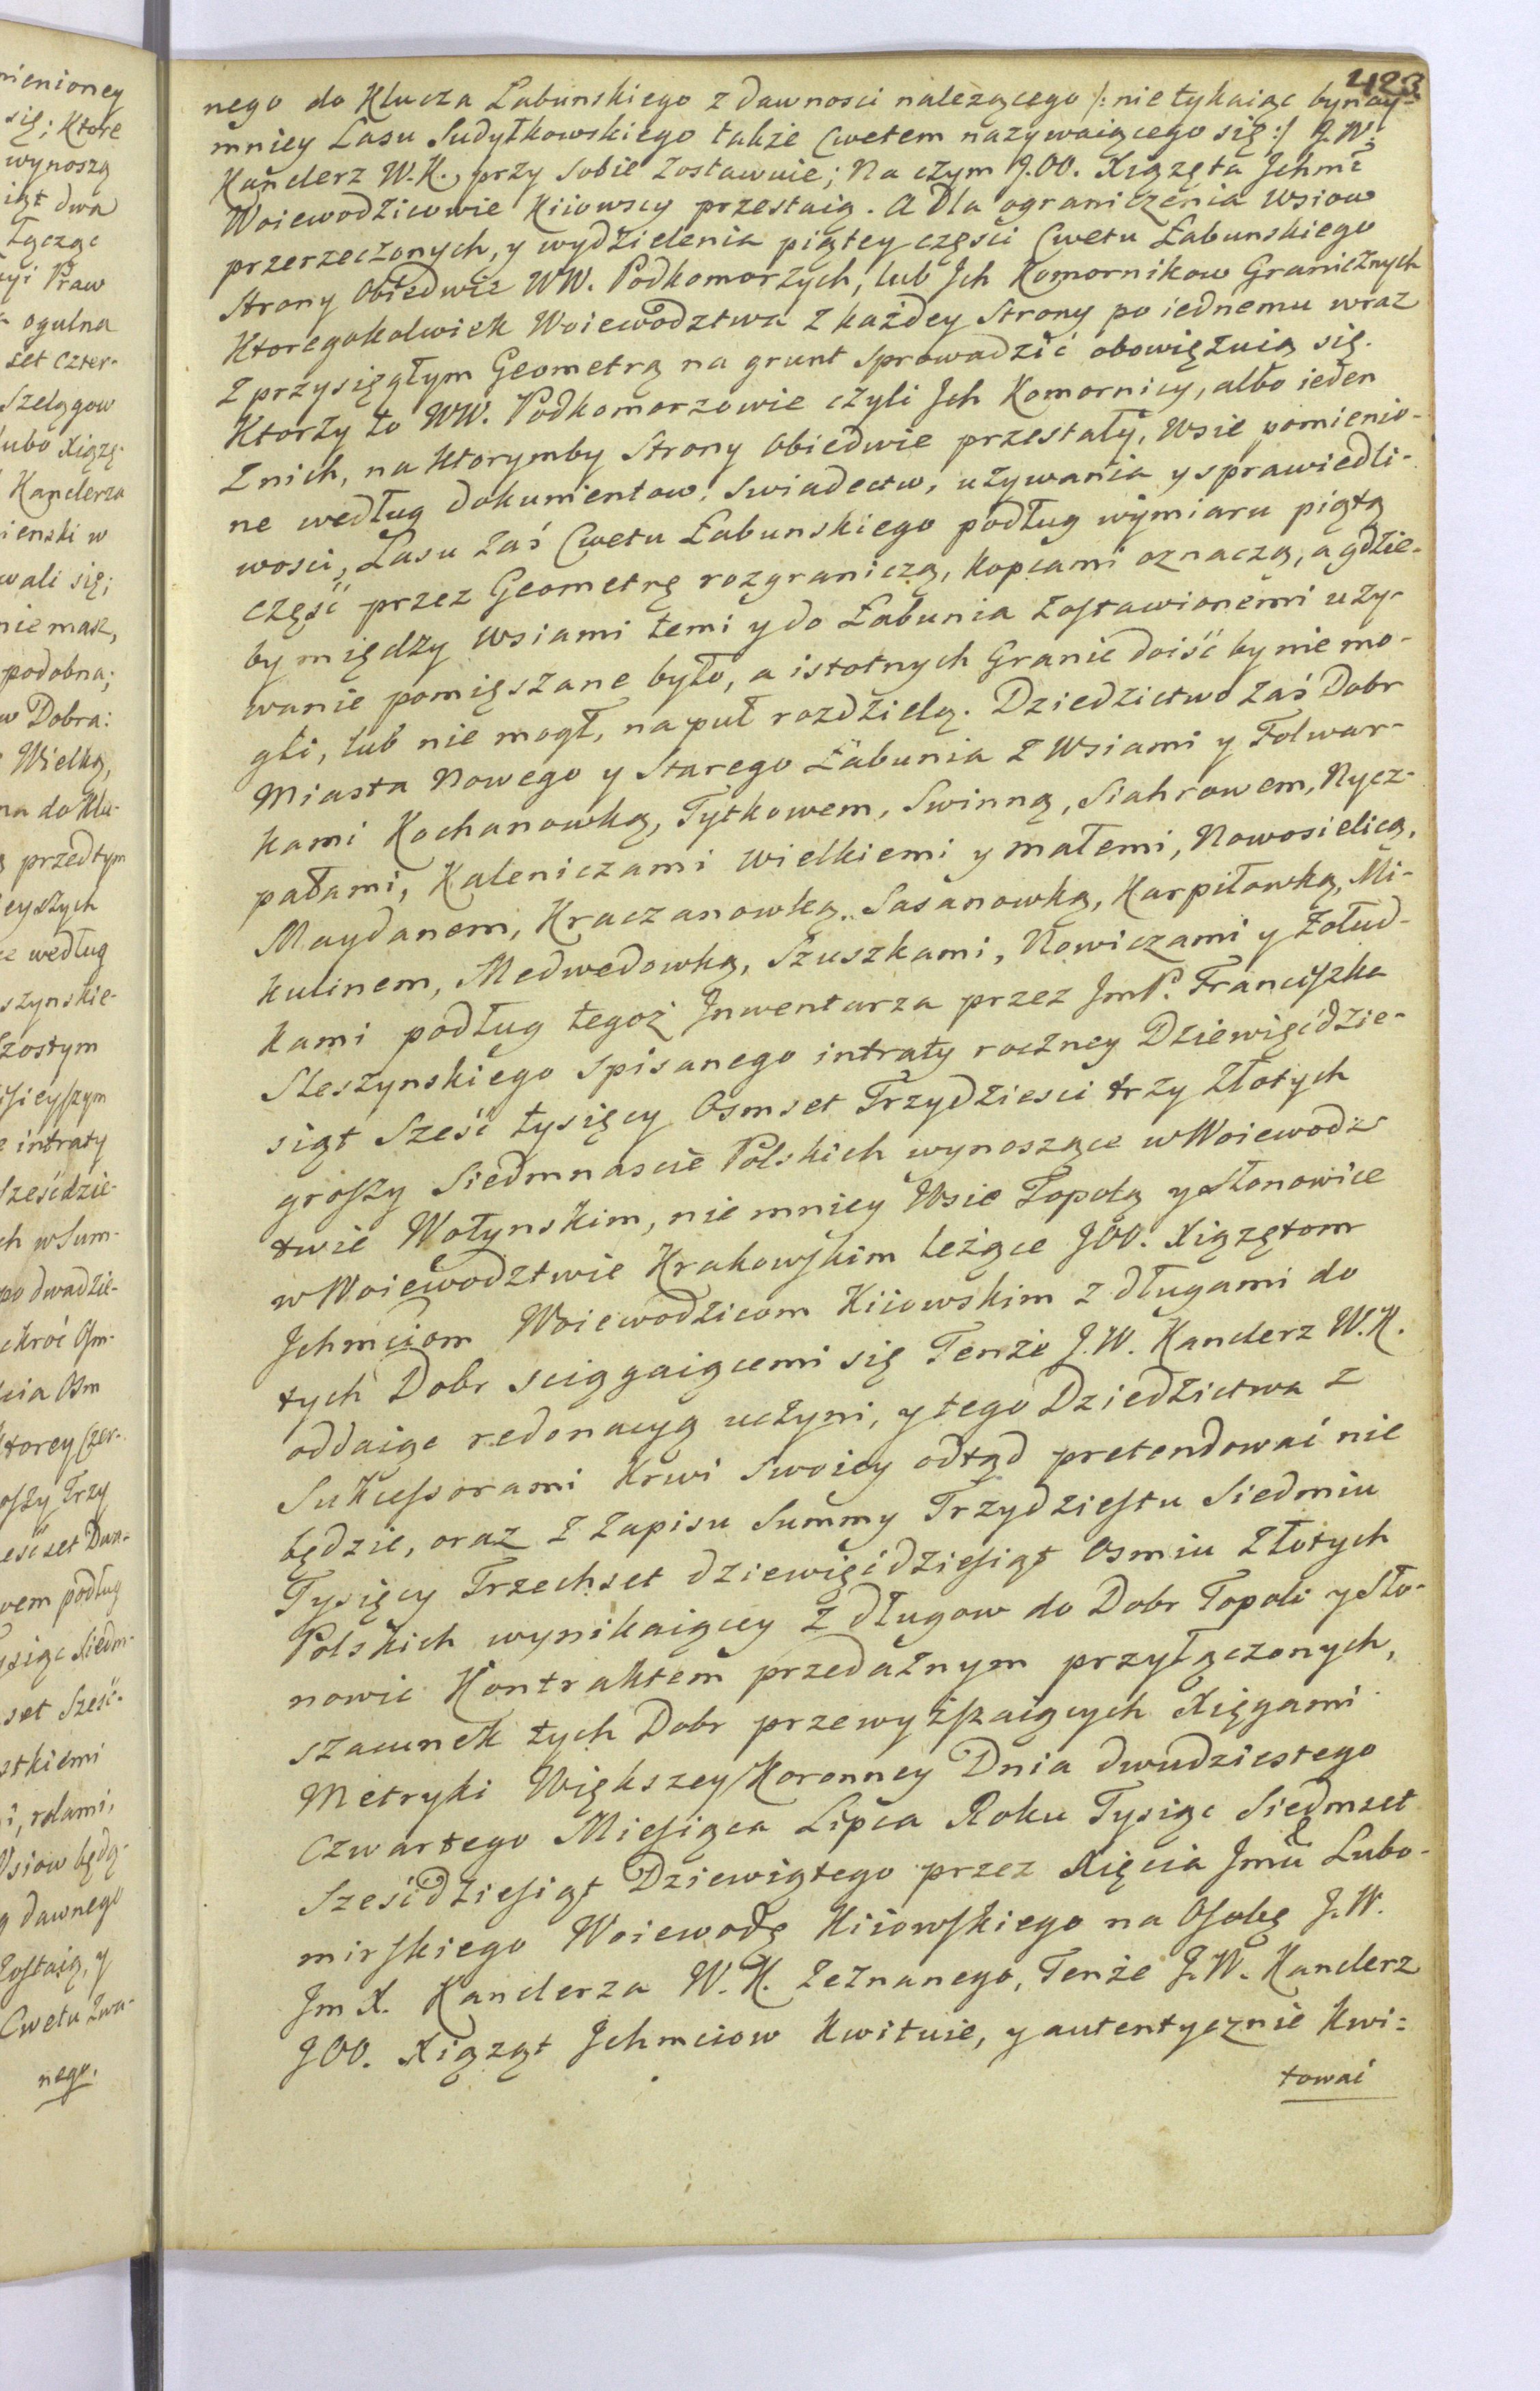 423
nego do Klucza Łabunskiego z dawnosci należącego /: nie tykaiąc bynay-
mniey Lasu Sudyłkowskiego także Cwetem nazywaiącego się :/ J.W.
Kanclerz W.K. przy sobie zostawuie; Na czym J.OO. Xiążęta Jchmć
Woiewodzicowie Kiiowscy przestaią. A Dla ograniczenia Wsiow
przerzeczonych, y wydzielenia piątey częsci Cwetu Łabunskiego
Strony Obiedwie WW. Podkomorzych, lub Jch Komornikow Granicznych
Ktoregokolwiek Woiewodztwa z każdey Strony po iednemu wraz
z przysięgłym Geometrą na grunt sprowadzić obowięzuią się.
Ktorzy to WW. Podkomorzowie czyli Jch Komornicy, albo ieden
z nich, na Ktorymby Strony Obiedwie przestały, Wsie pomienio-
ne według dokumentow, swiadectw, używania y sprawiedli-
wosci, Lasu zaś Cwetu Łabunskiego podług wymiaru piątą
część przez Geometrę rozgraniczą, Kopcami oznaczą, a gdzie-
by między Wsiami temi y do Łabunia zostawionemi uży-
wanie pomięszane było, a istotnych Granic doiść by nie mo-
gli, lub nie mogł, na puł rozdzielą. Dziedzictwo zaś Dobr
Miasta Nowego y Starego Łabunia z Wsiami y Folwar-
kami Kochanowką, Tytkowem, Swinną, Siahrowem, Nycz-
pałami, Kaleniczami wielkiemi y małemi, Nowosielicą,
Maydanem, Kraczanowką, Sasanowką, Karpiłowką, Mi-
kulinem, Medwedowką, Szuszkami, Nowiczami y Żołud-
kami podług tegoż Jnwentarza przez JmP. Franciszka
Sleszynskiego spisanego intraty roczney Dziewięćdzie-
siąt Sześć tysięcy Osmset Trzydziesci trzy Złotych
groszy Siedmnascie Polskich wynoszące w Woiewodz-
twie Wołynskim, nie mniey Wsie Topolą y Słonowice
w Woiewodztwie Krakowskim leżące JOO. Xiążętom
Jchmciom Woiewodzicom Kiiowskim z długami do
tych Dobr sciągaiącemi się Tenże J.W. Kanclerz W.K.
oddaiąc redonacyą uczyni, y tego Dziedzictwa z
Sukcessorami Krwi swoiey odtąd pretendować nie
będzie, oraz z Zapisu Summy Trzydziestu Siedmiu
Tysięcy Trzechset dziewięćdziesiąt Osmiu Złotych
Polskich wynikaiącey z długow do Dobr Topoli y Sło-
nowic Kontraktem przedażnym przyłączonych,
szacunek tych Dobr przewyższaiących Xięgami
Metryki Większey Koronney Dnia dwudziestego
czwartego Miesiąca Lipca Roku Tysiąc Siedmset
Sześćdziesiąt Dziewiątego przez Xięcia Jmći Lubo-
mirskiego Woiewodę Kiiowskiego na Osobę J.W.
Jm X. Kanclerza W.K. zeznanego, Tenże J.W. Kanclerz
JOO. Xiążąt Jchmciow Kwituie, y autentycznie Kwi=
tować